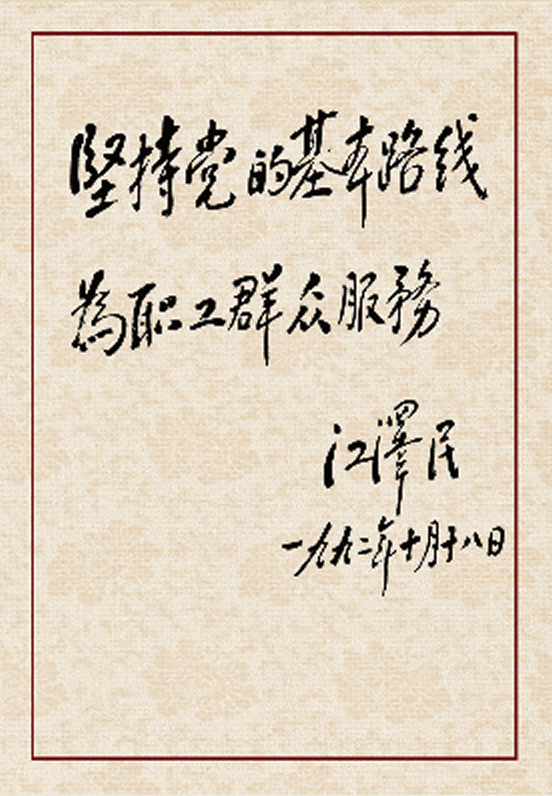 堅持党的基本路线
為职工群众服務
江澤民
一九九二年十月十八日